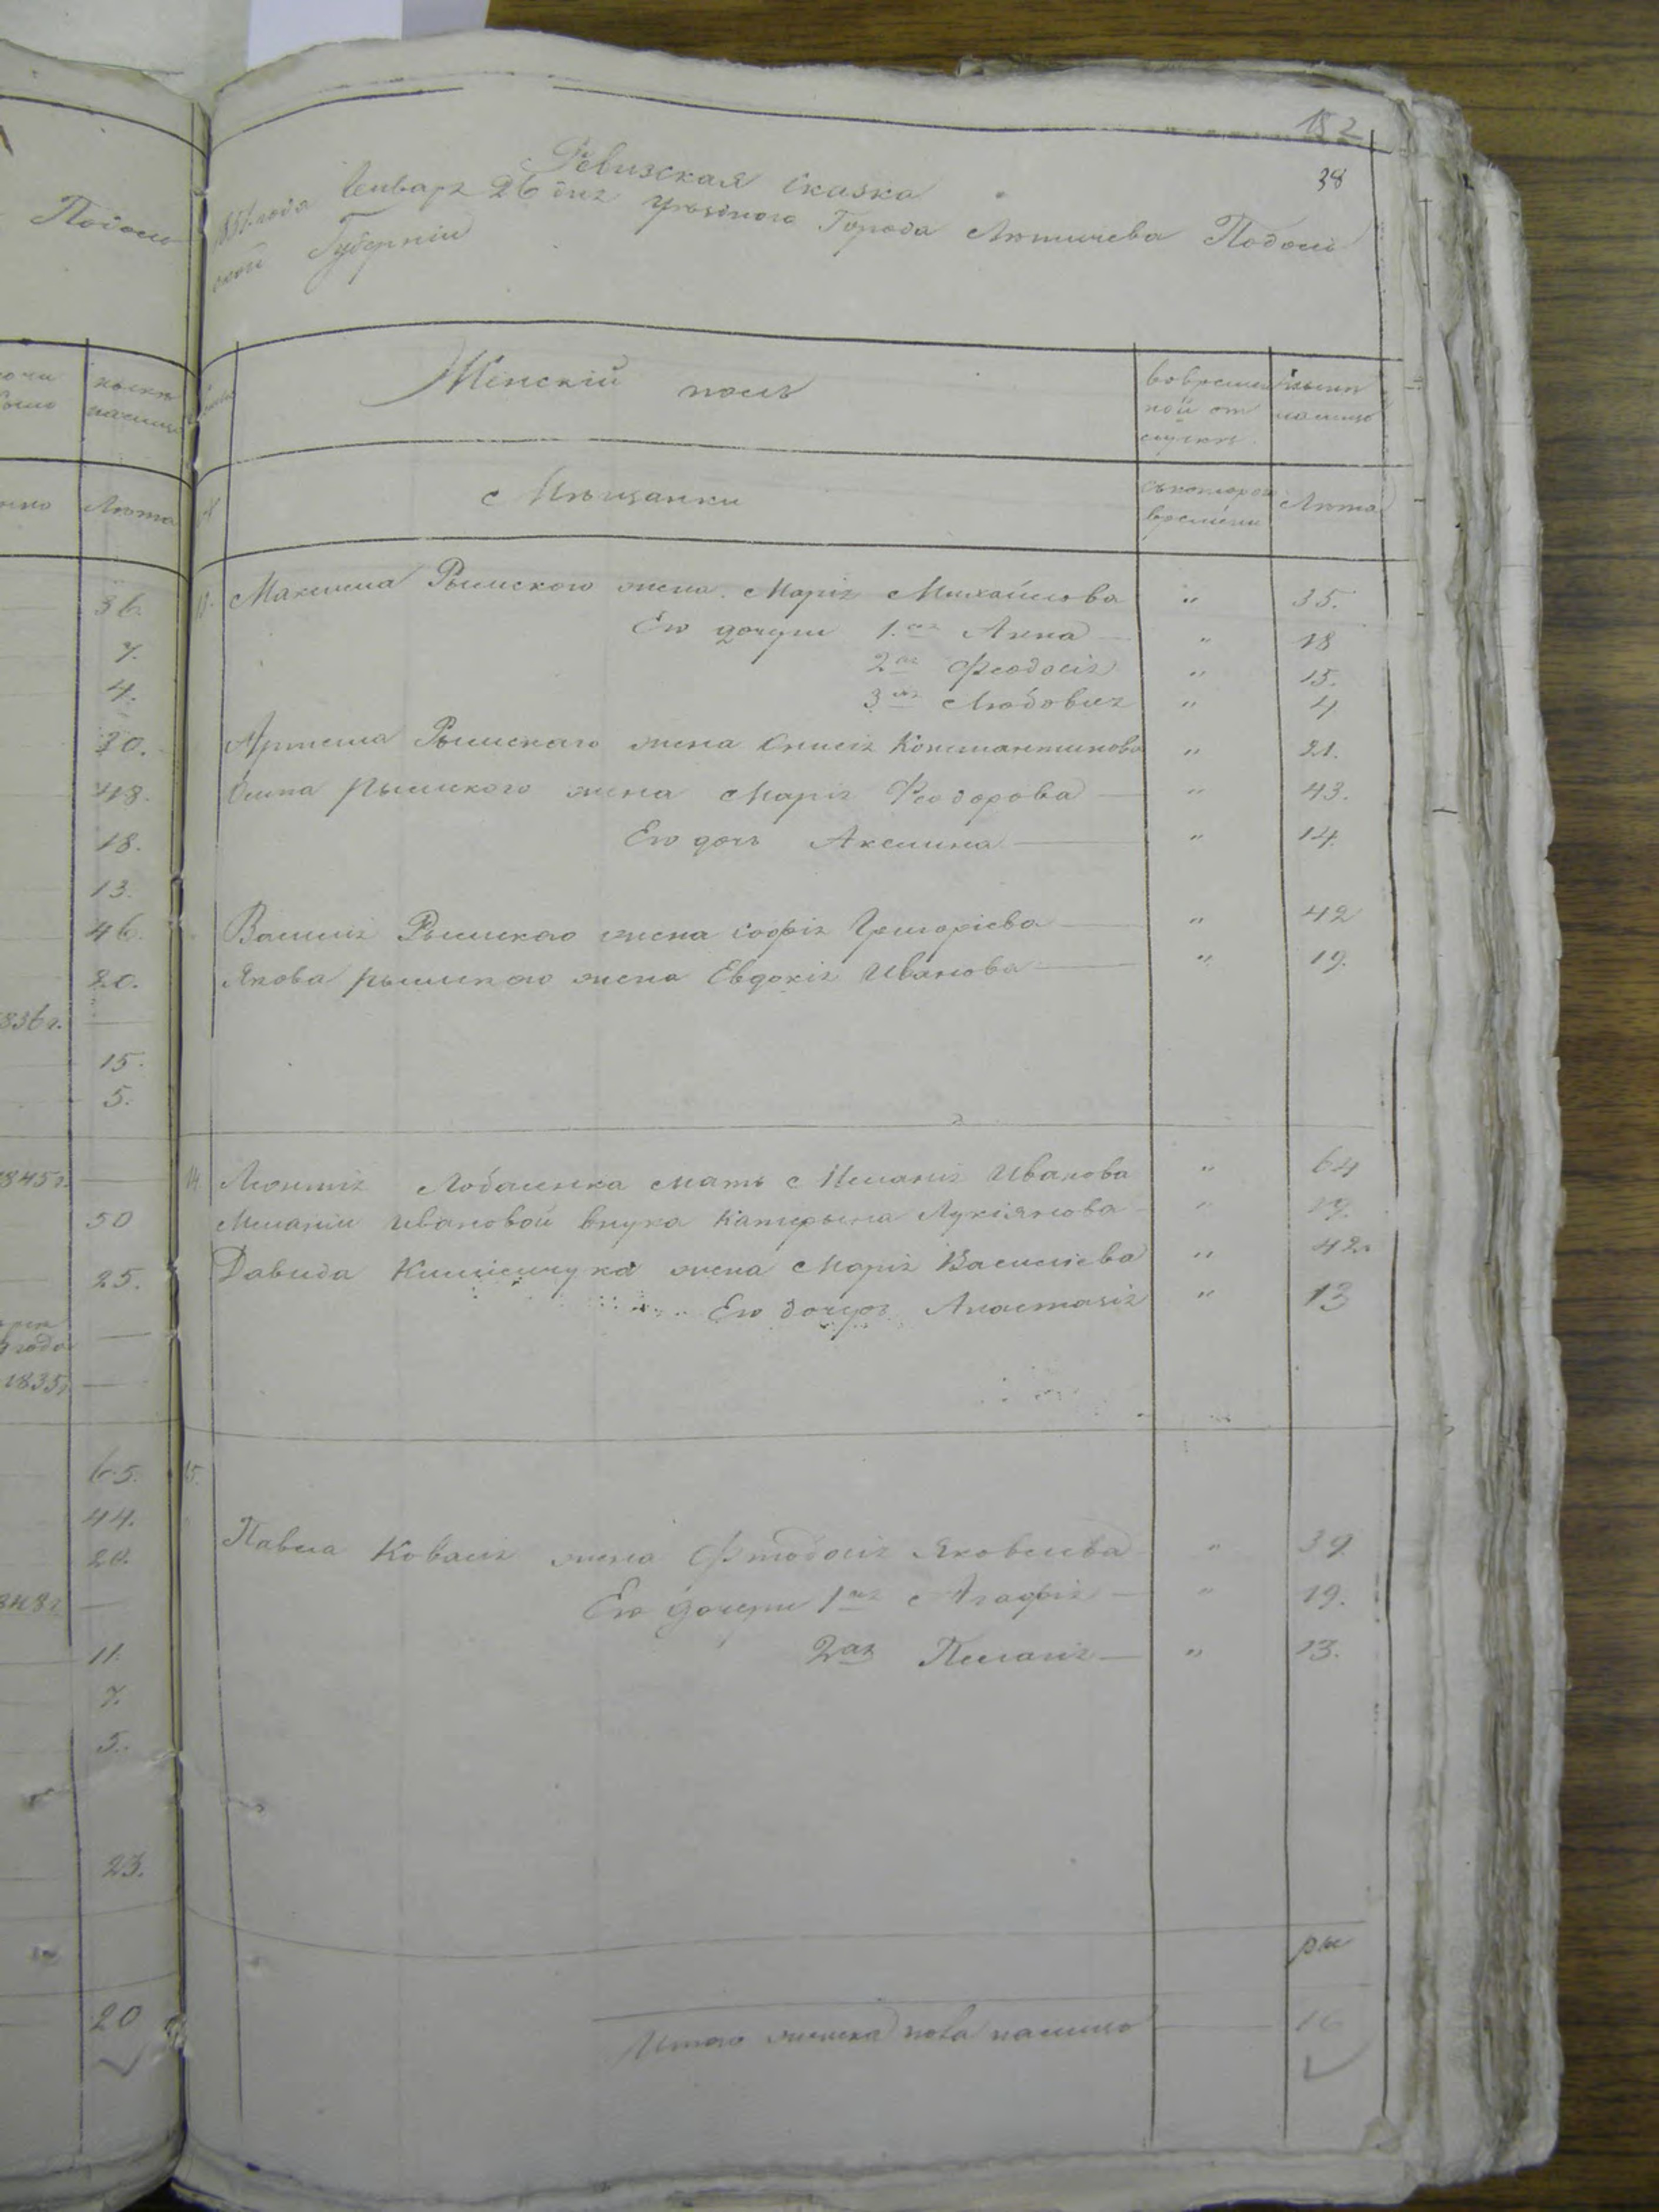 152
38
Ревизская Сказка
1851 года Генваря 26 дня уѣзднаго Города Лѣтичева Подоль
ской Губернiи
Подоль
Женскiй полъ
вовремен
ной от
лучкѣ
нынѣ
налицо
Мѣщанки
съкотораго
времени
Лѣта
Максима Рымского жена Марiя Михайлова " 35.
Его дочери 1.ая Анна " 18
2ая Феодосiя " 15.
3ая Людовия " 4
Артема Рымскаго жена Онисiя Константинова " 21.
Осипа Рымского жена Марiя Феодорова " 43.
Его дочь Аксинiа " 14.
Василiя Рымскаго жена Софiя Григорiева " 42
Якова Рымскаго жена Евдокiя Иванова " 19.
14 Леонтiя мать Меланiя Иванова " 64
Меланiи Ивановой внука Катерына Лукiянова " 19.
Давида жена Марiя Василiева " 42.
Его дочерь Анастасiя " 13
15.
Павла Коваля жена Фтодосiя Яковлева " 39.
Его дочери 1ая Агафiя " 19.
2ая Пелагiя " 13.
Итого женска пола налицо 16
Лѣта
36.
7.
4.
20.
48.
18.
13.
46.
20.
836г.
15.
5.
845г.
50
25.
1835г
65.
44.
20.
848г
11.
7.
5.
23.
20